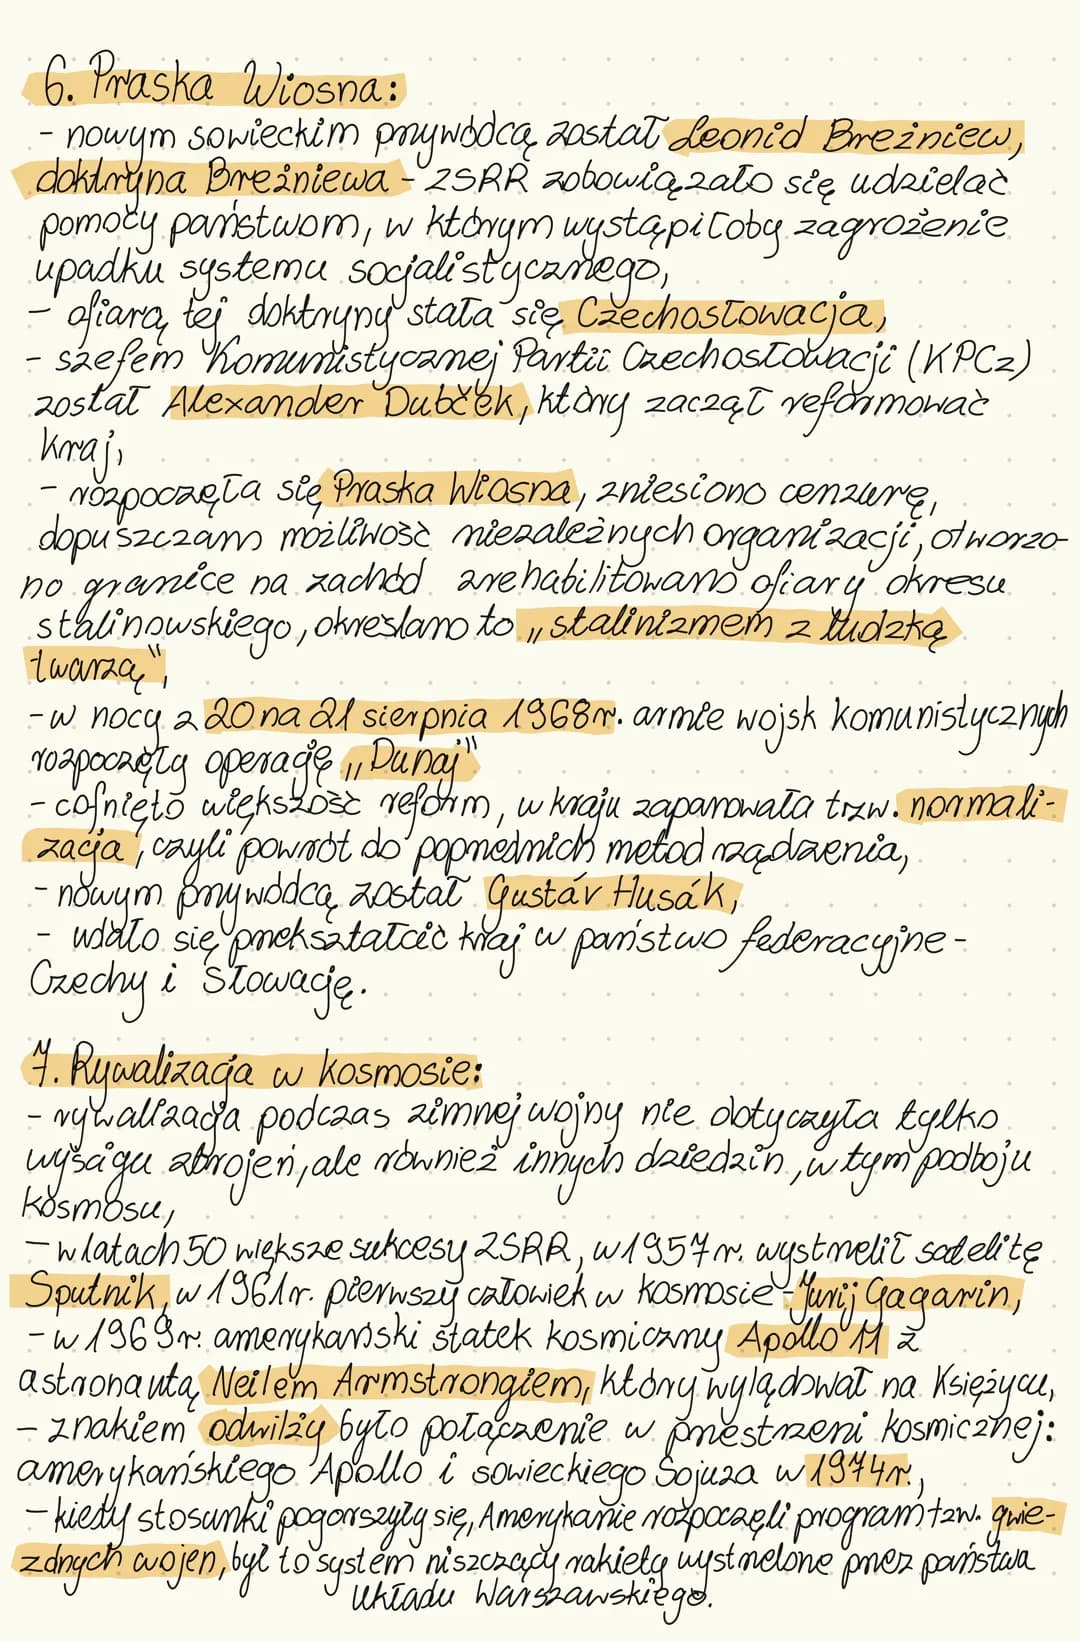 6. Praska Wiosna:
- nowym sowieckim przywódcą został Leonid Breżniew,
doktryna Breżniewa - ZSRR zobowiązało się udzielać
pomocy państwom, w którym wystąpiłoby zagrożenie
upadku systemu socjalistycznego,
- ofiarą tej doktryny stała się Czechosłowacja,
- szefem Komunistycznej Partii Czechosłowacji (KPCz)
został Alexander Dubček, który zaczął reformować
kraj,
- rozpoczęła się Praska Wiosna, zniesiono cenzurę,
dopuszczano możliwość niezależnych organizacji, otworzo-
no granice na zachód zrehabilitowano ofiary okresu
stalinowskiego, określano to „stalinizmem z ludzką
twarzą",
- w nocy z 20 na 21 sierpnia 1968r. armie wojsk komunistycznych
rozpoczęły operację „Dunaj"
- cofnięto większość reform, w kraju zapanowała tzw. normali-
zacja, czyli powrót do poprzednich metod rządzenia,
- nowym przywódcą został Gustáv Husák,
- udało się przekształcić kraj w państwo federacyjne -
Czechy i Słowację.
7. Rywalizacja w kosmosie:
- rywalizacja podczas zimnej wojny nie dotyczyła tylko
wyścigu zbrojeń, ale również innych dziedzin, w tym podboju
kosmosu,
- w latach 50 większe sukcesy ZSRR, w 1957r. wystrzelił satelitę
Sputnik, w 1961r. pierwszy człowiek w kosmosie - Jurij Gagarin,
- w 1969r. amerykański statek kosmiczny Apollo 11 z
astronautą Neilem Armstrongiem, który wylądował na Księżycu,
- znakiem odwilży było połączenie w przestrzeni kosmicznej:
amerykańskiego Apollo i sowieckiego Sojuza w 1974r.,
- kiedy stosunki pogorszyły się, Amerykanie rozpoczęli program tzw. gwie-
zdnych wojen, był to system niszczący rakiety wystrzelone przez państwa
Układu Warszawskiego.